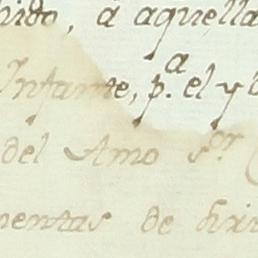 hido, á aquella
Infante, p.ª el y
del Amo s.or
mentas de